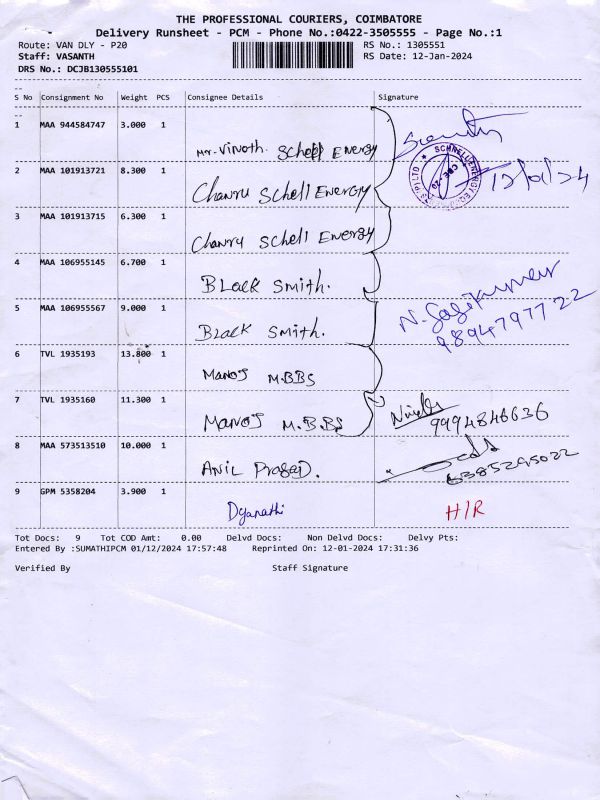 THE PROFESSIONAL COURIERS, COIMBATORE
Delivery Runsheet - PCM - Phone No.:0422-3505555 - Page No.:1
Route: VAN DLY - P20 RS No.: 1305551
Staff: VASANTH RS Date: 12-Jan-2024
DRS No.: DCJB130555101
S No Consignment No Weight PCS Consignee Details Signature
1 MAA 944584747 3.000 1 Mr. Vinoth. Schell Energy
2 MAA 101913721 8.300 1 Chanru Schell Energy 12/01/24
3 MAA 101913715 6.300 1 Chanru Schell Energy
4 MAA 106955145 6.700 1 Black Smith.
5 MAA 106955567 9.000 1 Black Smith. N. Sasikumar
9894797722
6 TVL 1935193 13.800 1 Manoj M.BBS
7 TVL 1935160 11.300 1 Manoj M.B.BS 9994846636
8 MAA 573513510 10.000 1 Anil Prasad. 6385295022
9 GPM 5358204 3.900 1 H/R
Tot Docs: 9 Tot COD Amt: 0.00 Delvd Docs: Non Delvd Docs: Delvy Pts:
Entered By :SUMATHIPCM 01/12/2024 17:57:48 Reprinted On: 12-01-2024 17:31:36
Verified By Staff Signature